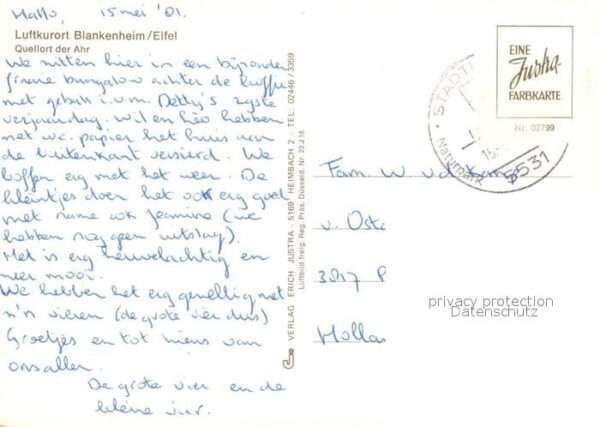 Hallo, 15 mei '81.
Luftkurort Blankenheim/Eifel
Quellort der Ahr
We zitten hier in een bijzonder
fraaie bungalow achter de koffie
met gebak i.v.m. Detty's
verjaardag. Wil en Léo hebben
met wc. papier het huis aan
de buitenkant versierd. We
boffen erg met het weer. De
kleintjes doen het ook erg goed
met name ook Jeannine (we
hebben nog geen uitslag).
Het is erg heuvelachtig en
zeer mooi.
We hebben het erg gezellig met
z'n vieren (de grote vier dus)
Groetjes en tot ziens van
ons allen.
De grote vier en de
kleine vier.
VERLAG ERICH JUSTRA · 5169 HEIMBACH 2 · TEL: 02446 / 3359
Luftbild freig. Reg. Präs. Düsseld. Nr. 23 J 18
EINE
Justra
FARBKARTE
Nr. 02799
STADTK
15.
Naturpark
5531
Fam. W. v
v. Ost
3817 P
Hollan
privacy protection
Datenschutz